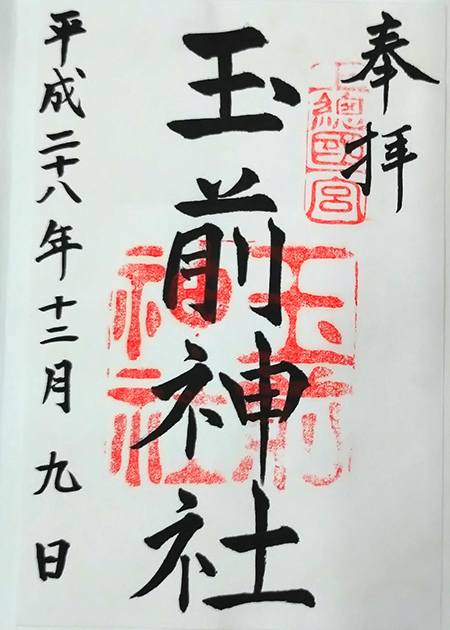 奉拝
上總國一宮
玉前神社
玉前神社
平成二十八年十二月九日